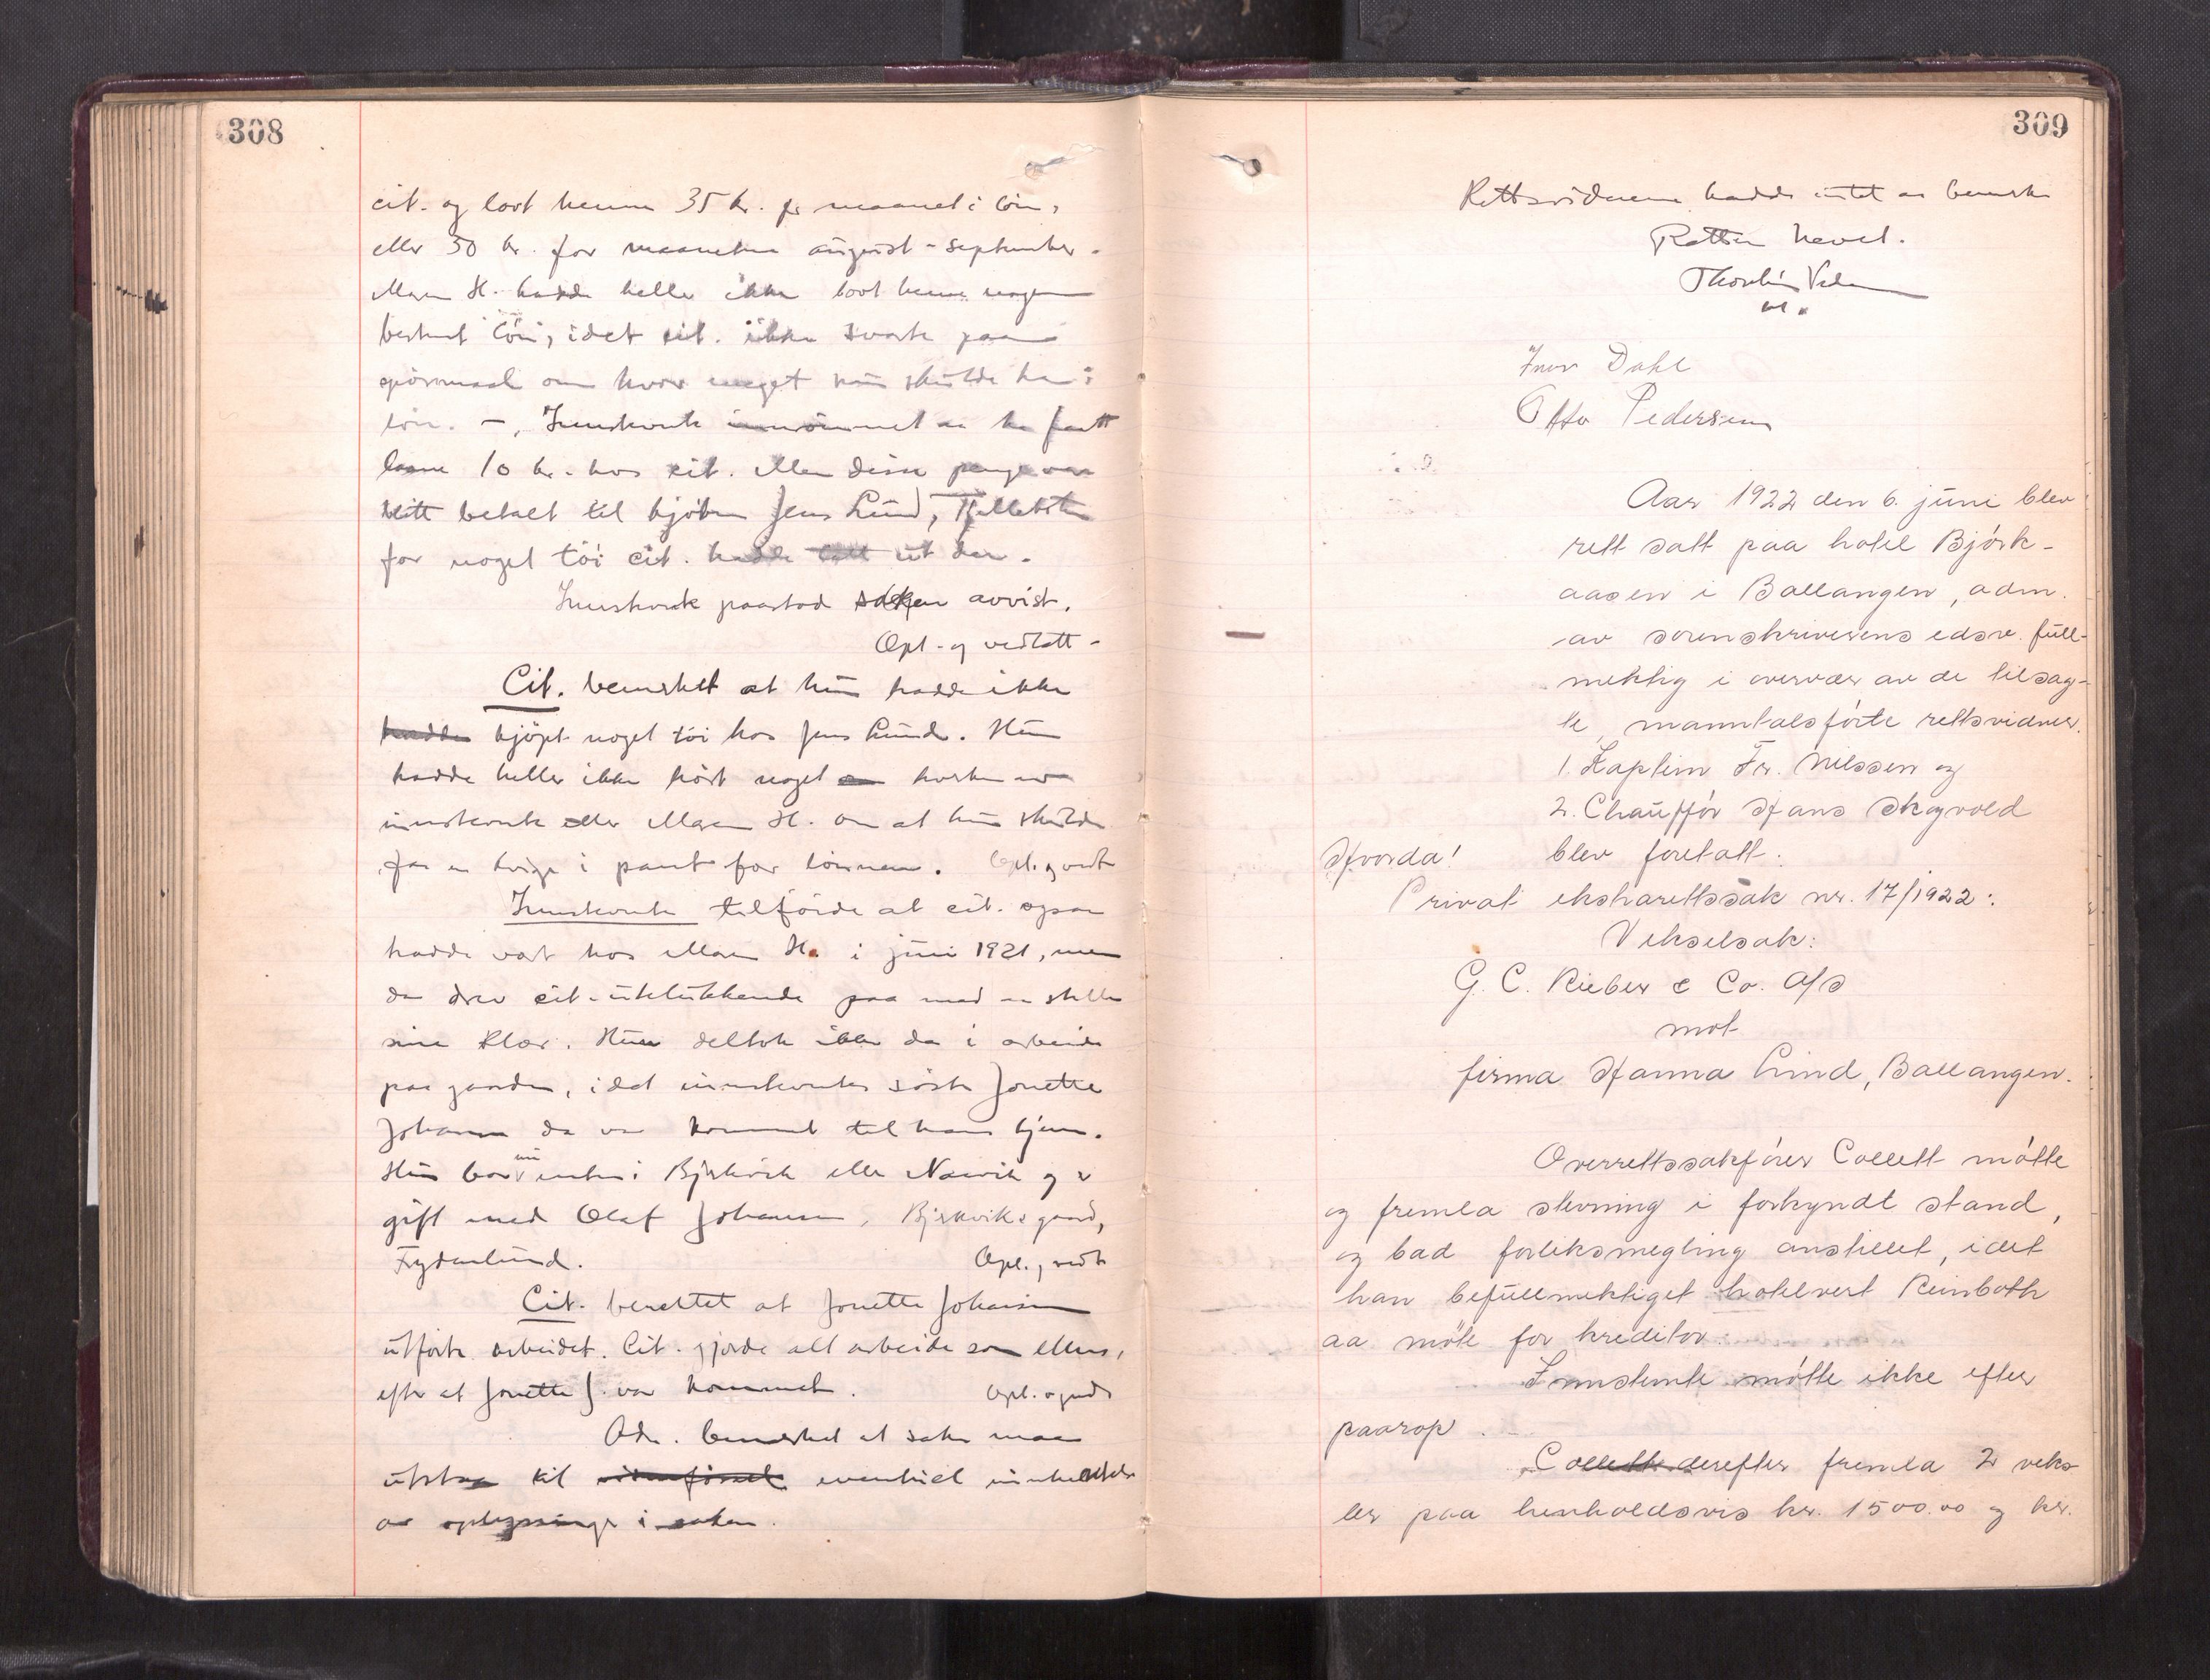 308
cit. og lovt henne 35 kr. pr maanet i lön,
eller 50 kr. for maanetene august - september.
Maren H. hadde heller ikke lovt henne nogen
bestemt lön, idet cit. ikke svarte paa
spörsmaal om hvor meget hun skulde ha i
lön. —, Innstevnte innrömmet aa ha faatt
laane 10 kr. hos cit. Men disse penge var
blitt betalt til kjöbm. Jens Lund,
for noget töi cit. hadde tatt ut der.
Innstevnte paastod saken avvist.
Opl. og vedtatt -
Cit. bemerket at hun hadde ikke
hadde kjöpt noget töi hos Jens Lund. Hun
hadde heller ikke hört noget hverken av
innstevnte eller Maren H. om at hun skulde
faa en kvige i pant for lönnen. Opl. og vedt
Innstevnte tilförde at cit. ogsaa
hadde vært hos Maren H. i juni 1921, men
da drev cit. utelukkende paa med aa stelle
sine klær. Hun deltok ikke da i arbeide
paa gaarden, idet innstevntes söster Jonette
Johansen da var kommet til hans hjem.
Hun bor nu enten i Bjerkvik eller Narvik og er
gift med Olaf Johansen, Bjerkviks gaard,
Frydenlund. Opl. og vedt
Cit. berettet at Jonette Johansen
utförte arbeidet. Cit. gjorde alt arbeide som ellers,
efter at Jonette J. var kommet. Opl. og vedt
Adm. bemerket at saken maa
utstaa til eventuel innhentelse
av oplysninger i saken.
309
Rettsvidnene hadde intet aa bemerke
Retten hevet.
Inor Dahl
Otto Pedersen
Aar 1922 den 6. juni blev
rett satt paa hotel Björk-
aasen i Ballangen, adm.
av sorenskriverens edsv. full-
mektig i overvær av de tilsag-
te, manntalsförte rettsvidner.
1. Kaptein Fr. Nilssen og
2. Chauffør Hans Skogvold
Hvorda! blev foretatt:
Privat ekstrarettssak nr. 17/1922:
Vekselsak:
G. C. Rieber & Co. A/S
mot
firma Hanna Lind, Ballangen.
Overrettssakförer Collett mötte
og fremla stevning i forkyndt stand,
og bad forliksmegling anstillet, idet
han befullmektiget hotelvert Reinboth
aa möte for kreditor.
Innstevnte mötte ikke efter
paarop.
Collett derefter fremla 2 veks
ler paa henholdsvis kr. 1500.00 og kr.